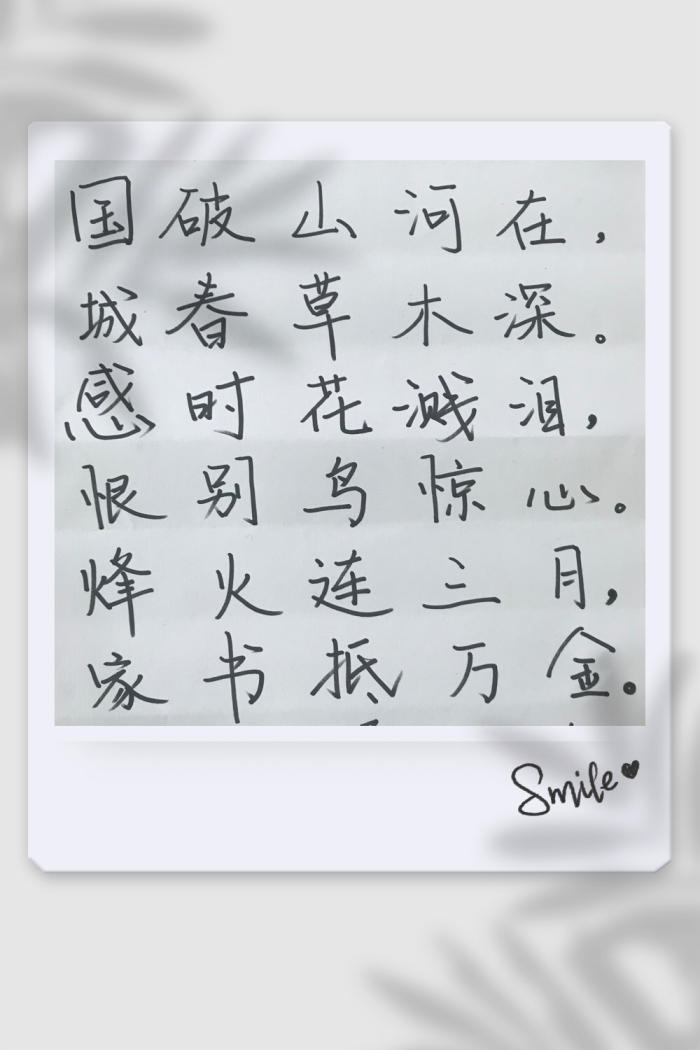 国破山河在，
城春草木深。
感时花溅泪，
恨别鸟惊心。
烽火连三月，
家书抵万金。
Smile